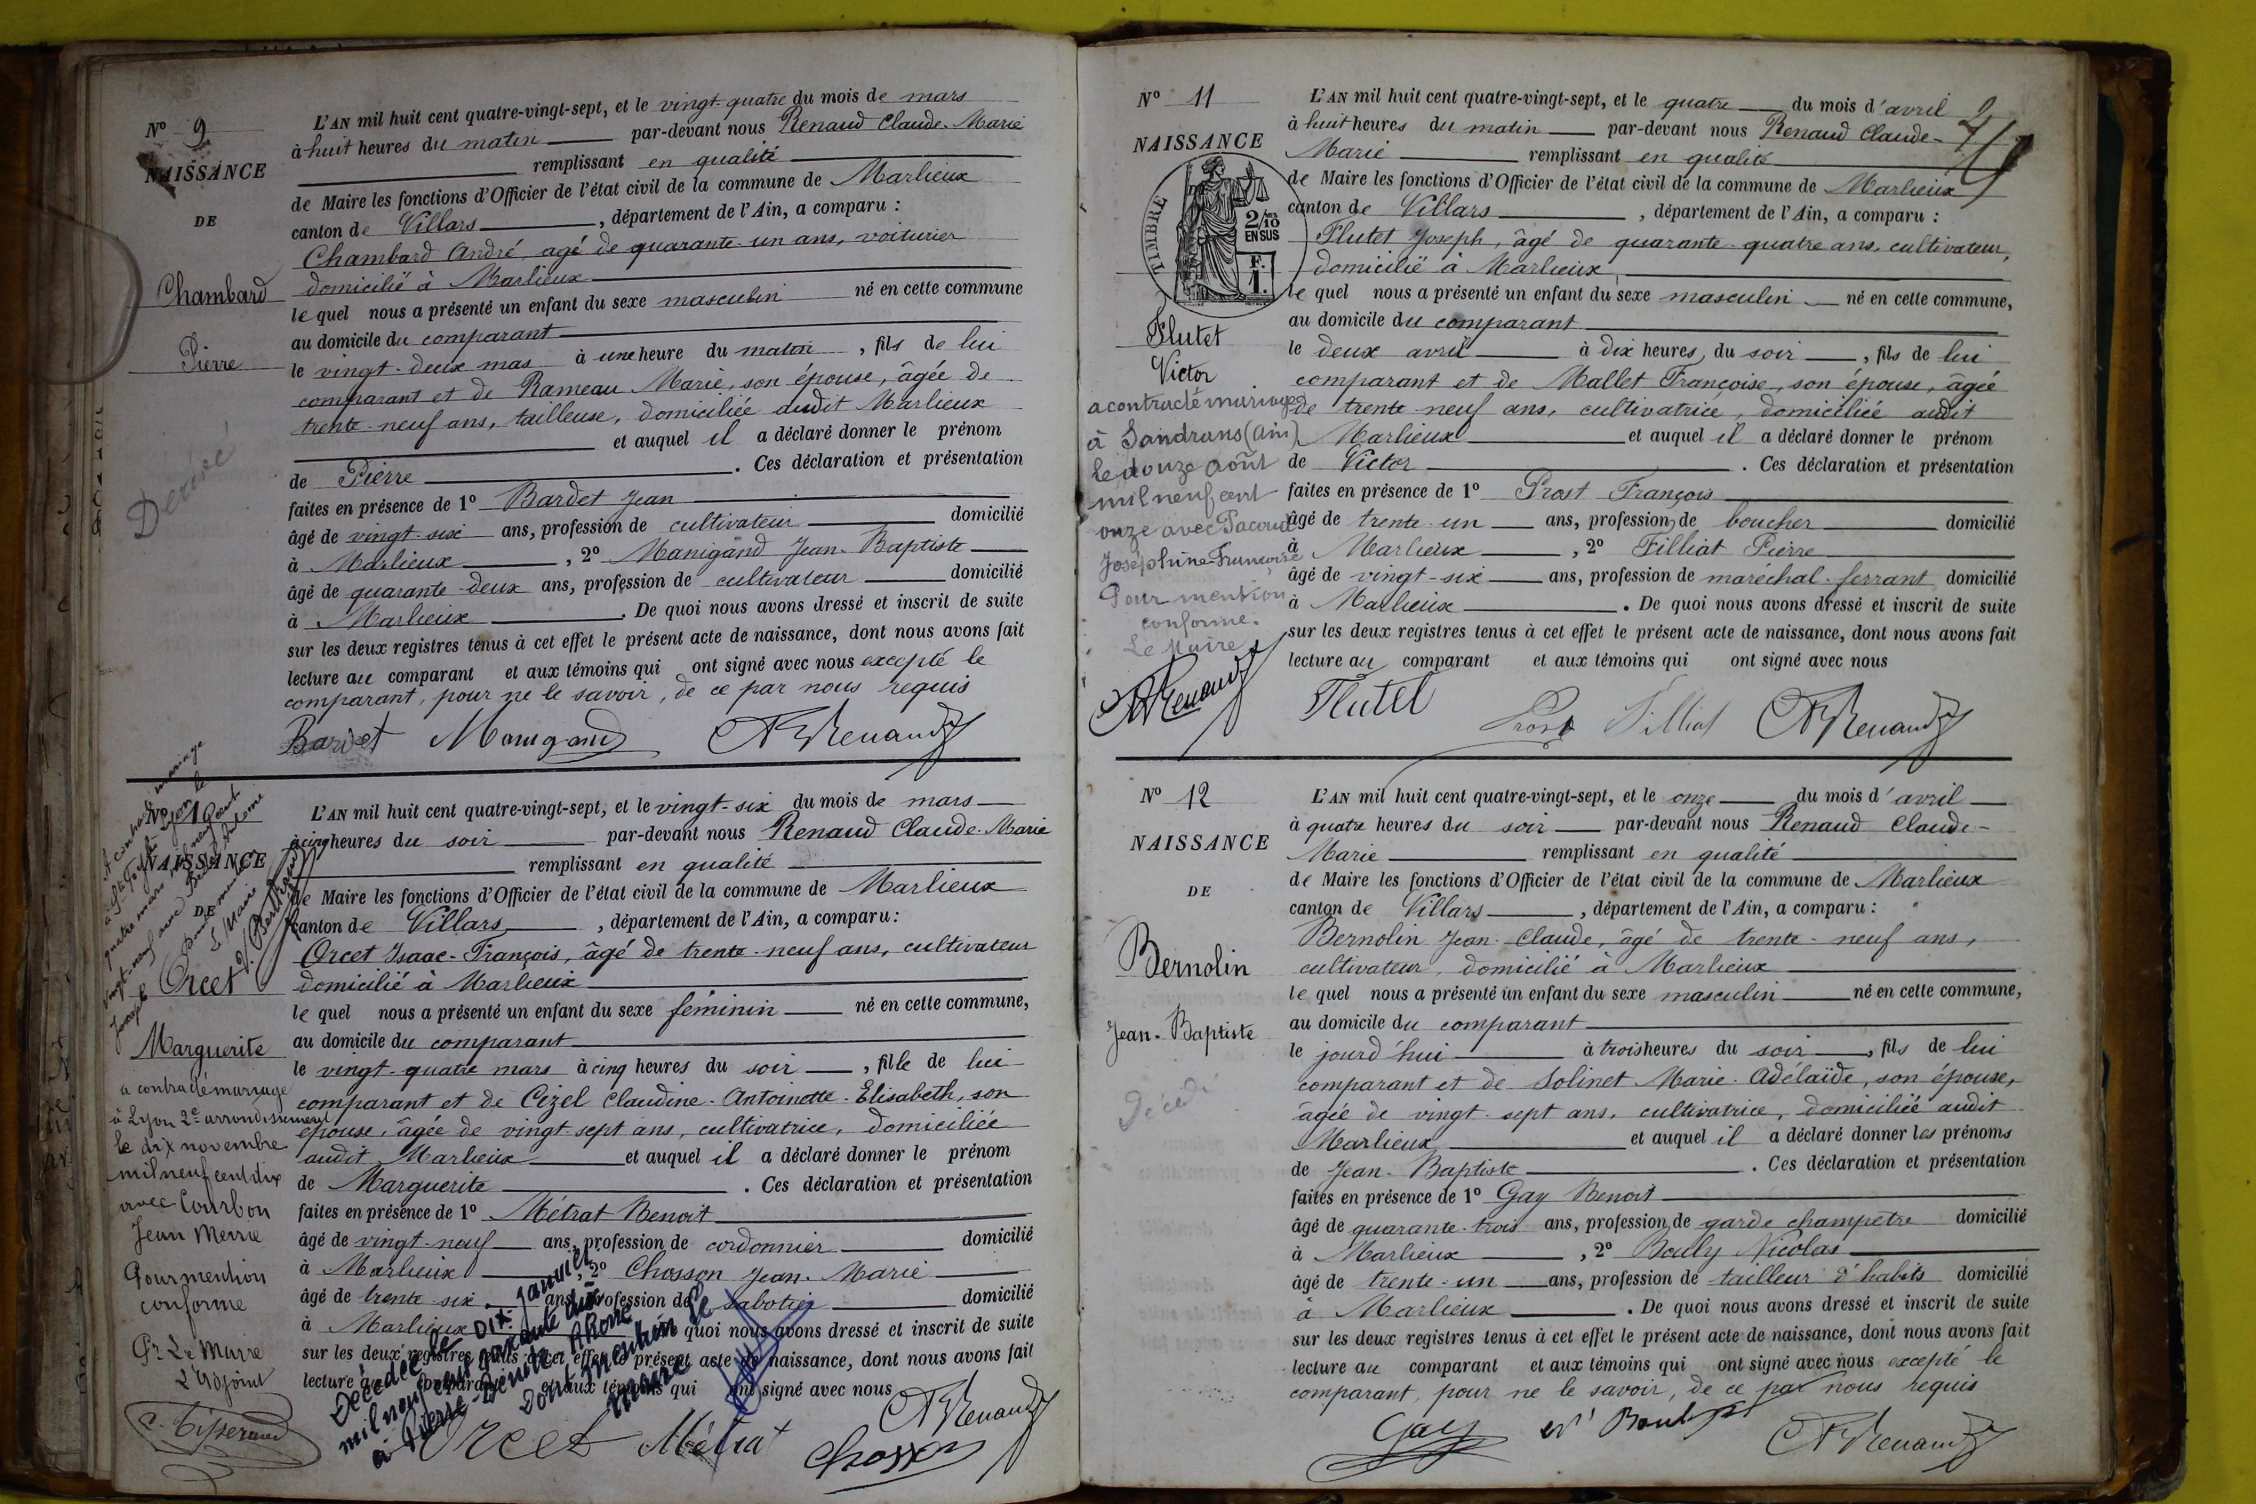 N° 9
NAISSANCE
DE
Chambard
Pierre
L'AN mil huit cent quatre-vingt-sept, et le vingt-quatre du mois de mars
à huit heures du matin par-devant nous Renaud Claude-Marie
remplissant en qualité
de Maire les fonctions d'Officier de l'état civil de la commune de Marlieux
canton de Villars, département de l'Ain, a comparu :
Chambard André, agé de quarante-un ans, voiturier
domicilié à Marlieux
lequel nous a présenté un enfant du sexe masculin né en cette commune
au domicile du comparant
le vingt-deux mas à une heure du maton, fils de lui
comparant et de Rameau Marie, son épouse, âgée de
trente-neuf ans, tailleuse, domiciliée audit Marlieux
et auquel il a déclaré donner le prénom
de Pierre. Ces déclaration et présentation
faites en présence de 1° Bardet Jean
âgé de vingt-six ans, profession de cultivateur domicilié
à Marlieux, 2° Manigand Jean-Baptiste
âgé de quarante-deux ans, profession de cultivateur domicilié
à Marlieux. De quoi nous avons dressé et inscrit de suite
sur les deux registres tenus à cet effet le présent acte de naissance, dont nous avons fait
lecture au comparant et aux témoins qui ont signé avec nous excepté le
comparant, pour ne le savoir, de ce par nous requis
Bardet Manigand Renaud
N° 10
NAISSANCE
DE
Orcet
Marguerite
a contracté mariage
à Lyon 2e arrondissement
le dix novembre
mil neuf cent dix
avec Courbon
Jean Marie
Pour mention
conforme
Pr Le Maire
L'Adjoint
C. Tisserand
L'AN mil huit cent quatre-vingt-sept, et le vingt-six du mois de mars
à cinq heures du soir par-devant nous Renaud Claude-Marie
remplissant en qualité
de Maire les fonctions d'Officier de l'état civil de la commune de Marlieux
canton de Villars, département de l'Ain, a comparu :
Orcet Isaac-François, âgé de trente-neuf ans, cultivateur
domicilié à Marlieux
lequel nous a présenté un enfant du sexe féminin né en cette commune,
au domicile du comparant
le vingt-quatre mars à cinq heures du soir, fille de lui
comparant et de Cizel Claudine-Antoinette-Elisabeth, son
épouse, âgée de vingt-sept ans, cultivatrice, domiciliée
audit Marlieux et auquel il a déclaré donner le prénom
de Marguerite. Ces déclaration et présentation
faites en présence de 1° Métrat Benoit
âgé de vingt-neuf ans, profession de cordonnier domicilié
à Marlieux, 2° Chosson Jean-Marie
âgé de trente-six ans, profession de sabotier domicilié
à Marlieux. De quoi nous avons dressé et inscrit de suite
sur les deux registres tenus à cet effet le présent acte de naissance, dont nous avons fait
lecture au comparant et aux témoins qui ont signé avec nous
Décédée le Dix Janvier
mil neuf cent soixante dix
à Pierre-Bénite Rhône
Dont mention le
Maire
Orcet Métrat Chosson Renaud
N° 11
NAISSANCE
TIMBRE
2/10 EN SUS
F. 1.
Flutet
Victor
a contracté mariage
à Sandrans (Ain)
le douze août
mil neuf cent
onze avec Pacoud
Joséphine-Françoise
Pour mention
conforme.
Le Maire
Renaud
L'AN mil huit cent quatre-vingt-sept, et le quatre du mois d'avril
à huit heures du matin par-devant nous Renaud Claude-
Marie remplissant en qualité
de Maire les fonctions d'Officier de l'état civil de la commune de Marlieux
canton de Villars, département de l'Ain, a comparu :
Flutet Joseph, âgé de quarante-quatre ans, cultivateur,
domicilié à Marlieux,
lequel nous a présenté un enfant du sexe masculin né en cette commune,
au domicile du comparant
le deux avril à dix heures du soir, fils de lui
comparant et de Mallet Françoise, son épouse, âgée
de trente-neuf ans, cultivatrice, domiciliée audit
Marlieux et auquel il a déclaré donner le prénom
de Victor. Ces déclaration et présentation
faites en présence de 1° Prost François
âgé de trente-un ans, profession de boucher domicilié
à Marlieux, 2° Filliat Pierre
âgé de vingt-six ans, profession de maréchal-ferrant domicilié
à Marlieux. De quoi nous avons dressé et inscrit de suite
sur les deux registres tenus à cet effet le présent acte de naissance, dont nous avons fait
lecture au comparant et aux témoins qui ont signé avec nous
Flutet Prost Filliat Renaud
N° 12
NAISSANCE
DE
Bernolin
Jean-Baptiste
Décédé
L'AN mil huit cent quatre-vingt-sept, et le onze du mois d'avril
à quatre heures du soir par-devant nous Renaud Claude-
Marie remplissant en qualité
de Maire les fonctions d'Officier de l'état civil de la commune de Marlieux
canton de Villars, département de l'Ain, a comparu :
Bernolin Jean-Claude, âgé de trente-neuf ans,
cultivateur, domicilié à Marlieux
lequel nous a présenté un enfant du sexe masculin né en cette commune,
au domicile du comparant
le jourd'hui à trois heures du soir, fils de lui
comparant et de Solinet Marie-Adélaïde, son épouse,
âgée de vingt-sept ans, cultivatrice, domiciliée audit
Marlieux et auquel il a déclaré donner les prénoms
de Jean-Baptiste. Ces déclaration et présentation
faites en présence de 1° Gay Benoit
âgé de quarante-trois ans, profession de garde champêtre domicilié
à Marlieux, 2° Bouly Nicolas
âgé de trente-un ans, profession de tailleur d'habits domicilié
à Marlieux. De quoi nous avons dressé et inscrit de suite
sur les deux registres tenus à cet effet le présent acte de naissance, dont nous avons fait
lecture au comparant et aux témoins qui ont signé avec nous excepté le
comparant, pour ne le savoir, de ce par nous requis
Gay Bouly Renaud